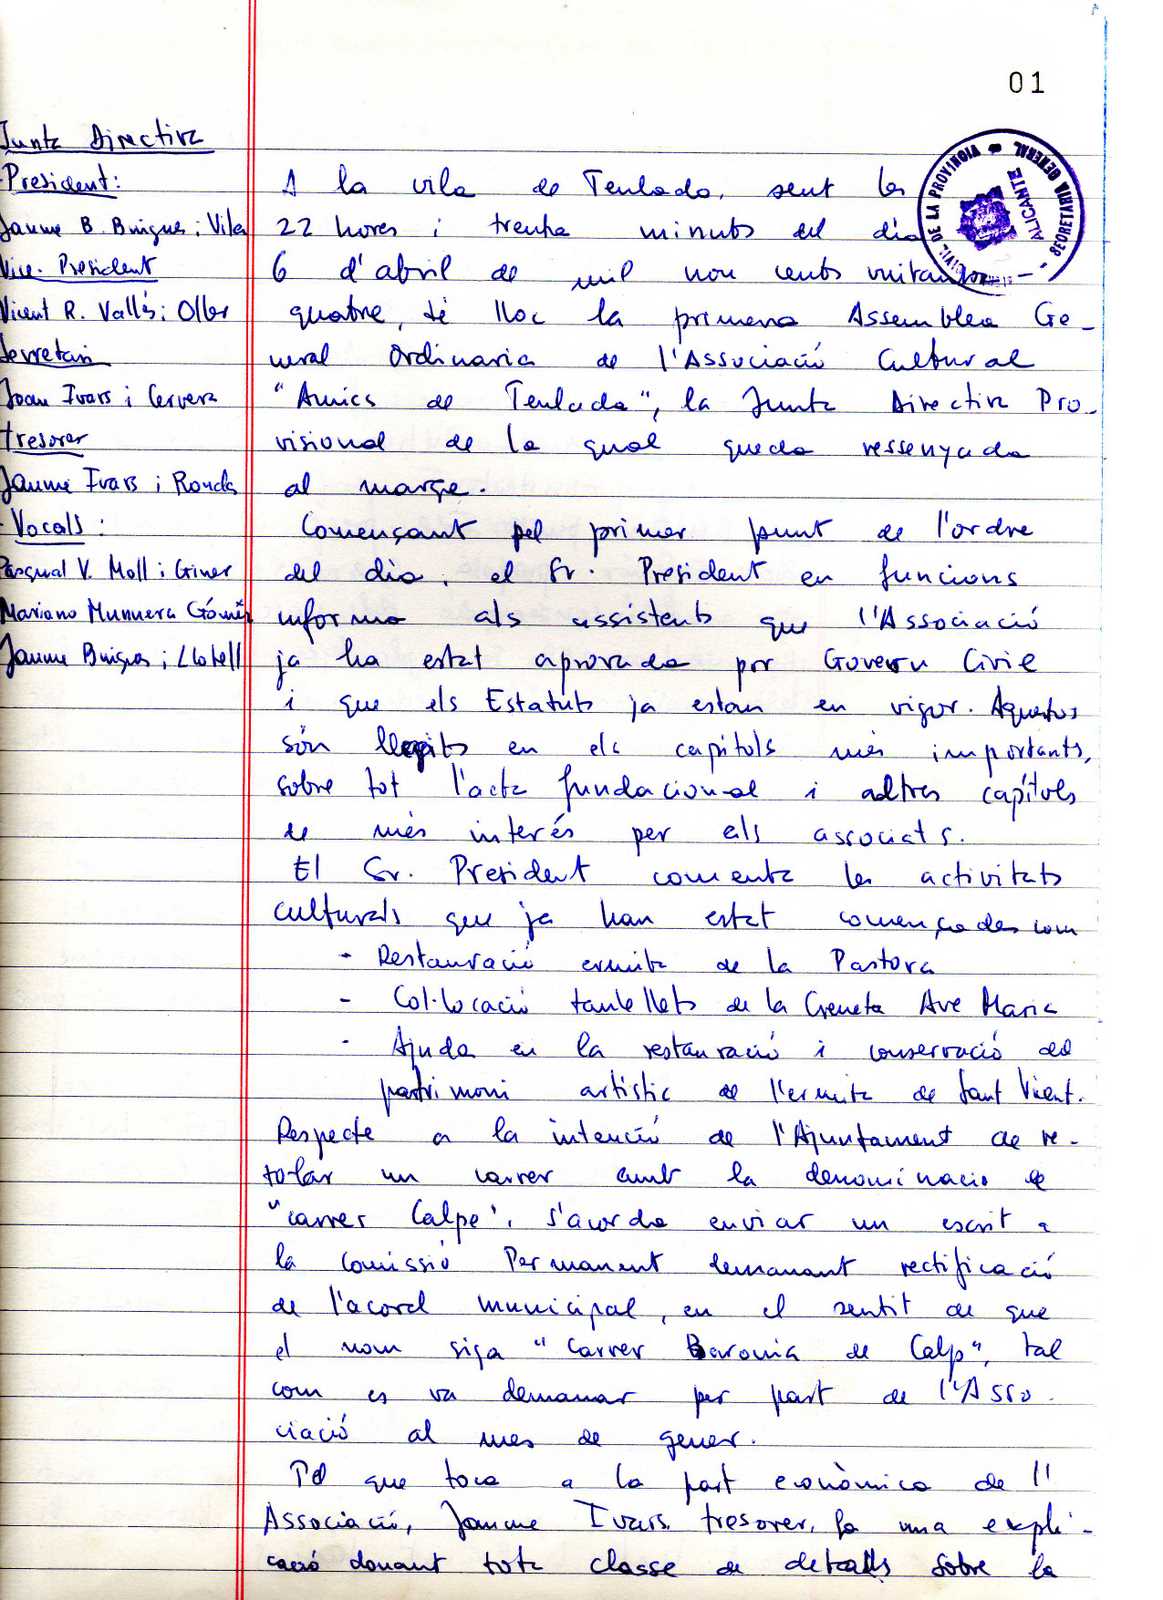 01
Junta Directiva
President:
Jaume B. Buigues i Vila
Vice-President
Vicent R. Vallés i Oller
Secretari
Joan Ivars i Cervera
tresorer
Jaume Ivars i Ronda
Vocals:
Pasqual V. Moll i Giner
Mariano Munuera Gómiz
Jaume Buigues i Llobell
GOBIERNO CIVIL DE LA PROVINCIA
SECRETARIA GENERAL
ALICANTE
A la vila de Teulada, sent les
22 hores i trenta minuts del dia
6 d'abril de mil nou cents vuitanta-
quatre, té lloc la primera Assemblea Ge-
neral Ordinaria de l'Associació Cultural
"Amics de Teulada", la Junta Directiva Pro-
visional de la qual queda ressenyada
al marge.
Començant pel primer punt de l'ordre
del dia, el Sr. President en funcions
informa als assistents que l'Associació
ja ha estat aprovada per Govern Civil
i que els Estatuts ja estan en vigor. Aquestos
són llegits en els capítols més importants,
sobre tot l'acta fundacional i altres capítols
de més interés per als associats.
El Sr. President comenta les activitats
culturals que ja han estat començades com
- Restauració ermita de la Pastora
- Col·locació taulellets de la Creueta Ave Maria
- Ajuda en la restauració i conservació del
patrimoni artístic de l'ermita de Sant Vicent.
Respecte a la intenció de l'Ajuntament de re-
tolar un carrer amb la denominacio de
"carrer Calpe", s'acorda enviar un escrit a
la Comissió Permanent demanant rectificació
de l'acord municipal, en el sentit de que
el nom siga "Carrer Baronia de Calp", tal
com es va demanar per part de l'Asso-
ciació al mes de gener.
Pel que toca a la part econòmica de l'
Associació, Jaume Ivars, tresorer, fa una expli-
cació donant tota classe de detalls sobre la